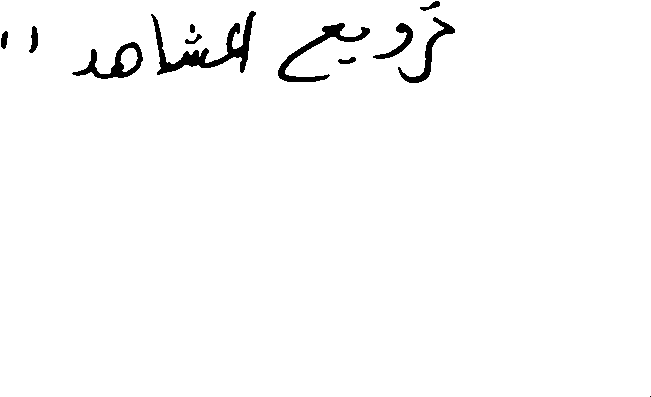 ترويع المشاهد "